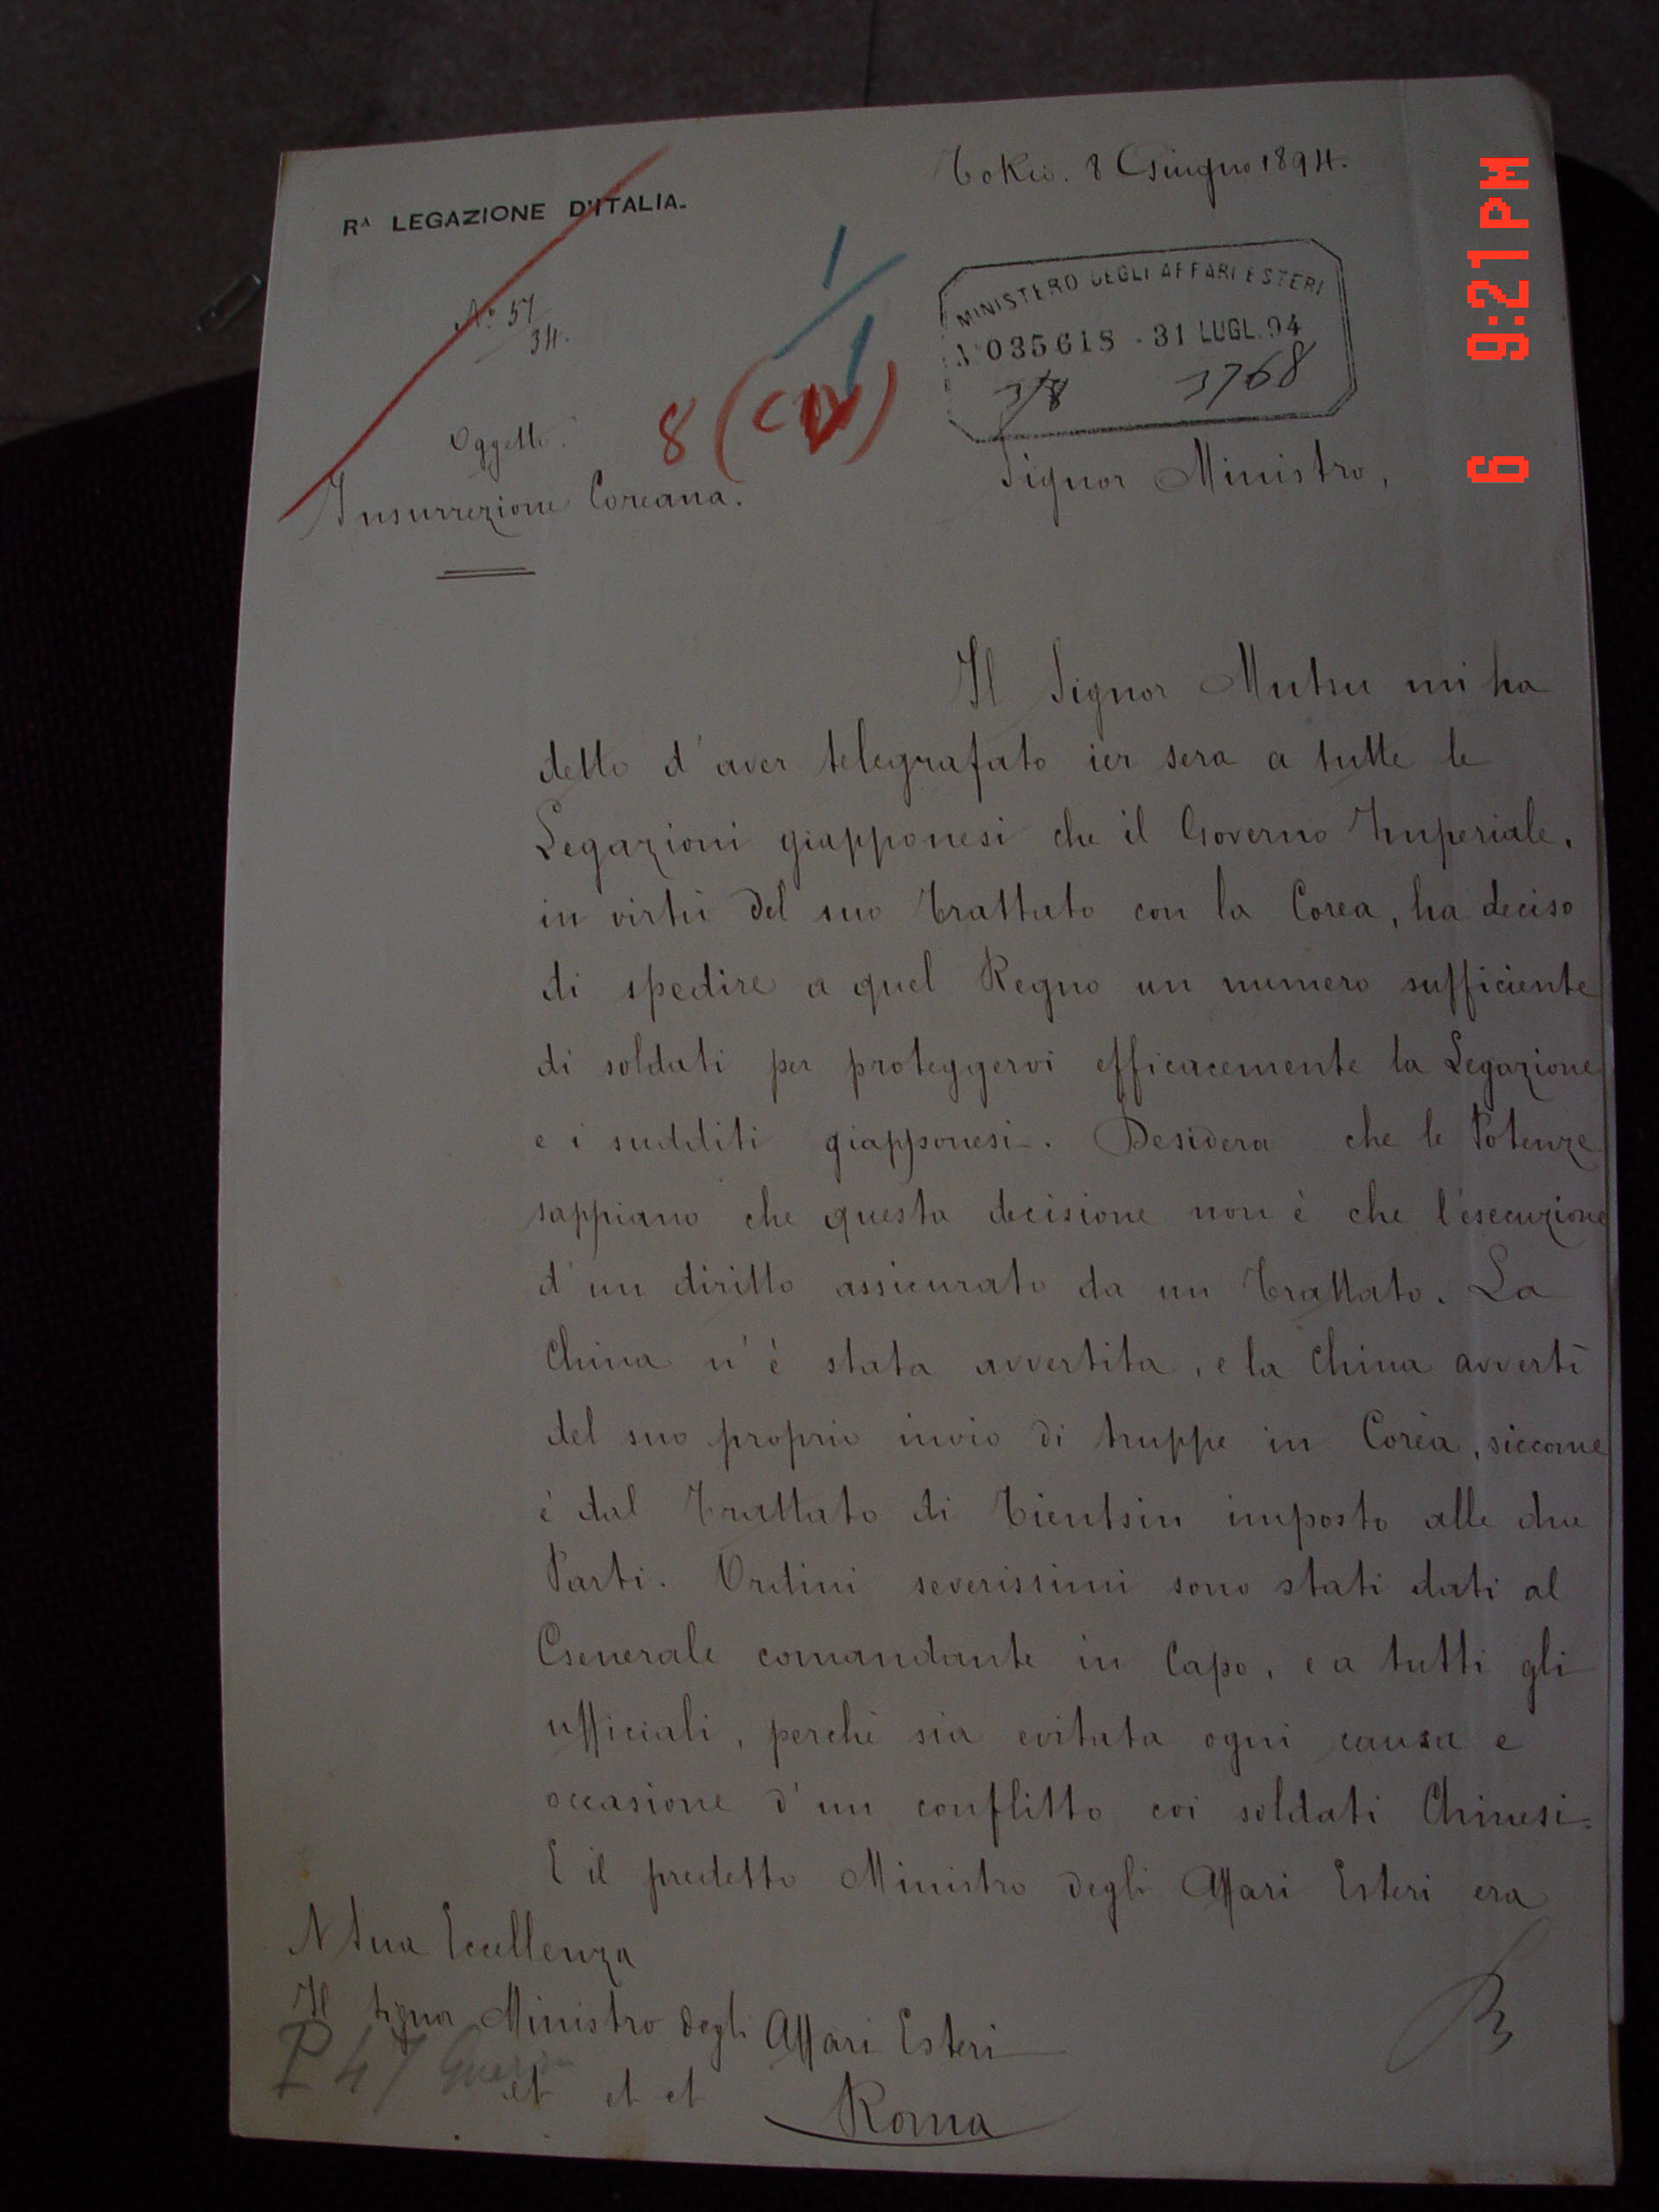 Rᴬ LEGAZIONE D'ITALIA.
Tokio. 8 Giugno 1894.
Nº 57
34.
Oggetto:
Insurrezione Coreana.
8 (CIV)
1
1
MINISTERO DEGLI AFFARI ESTERI
Nº 035618 - 31 LUGL. 94
3/8 3768
Signor Ministro,
Il Signor Mutsu mi ha
detto d'aver telegrafato ier sera a tutte le
Legazioni giapponesi che il Governo Imperiale,
in virtù del suo Trattato con la Corea, ha deciso
di spedire a quel Regno un numero sufficiente
di soldati per proteggervi efficacemente la Legazione
e i sudditi giapponesi. Desidera che le Potenze
sappiano che questa decisione non è che l'esecuzione
d'un diritto assicurato da un Trattato. La
China n'è stata avvertita, e la China avvertì
del suo proprio invio di truppe in Corea, siccome
è dal Trattato di Tientsin imposto alle due
Parti. Ordini severissimi sono stati dati al
Generale comandante in Capo, e a tutti gli
ufficiali, perchè sia evitata ogni causa e
occasione d'un conflitto coi soldati Chinesi.
E il predetto Ministro degli Affari Esteri era
A Sua Eccellenza
Il Signor Ministro degli Affari Esteri
P 47
et et et
Roma
6 9:21 PM